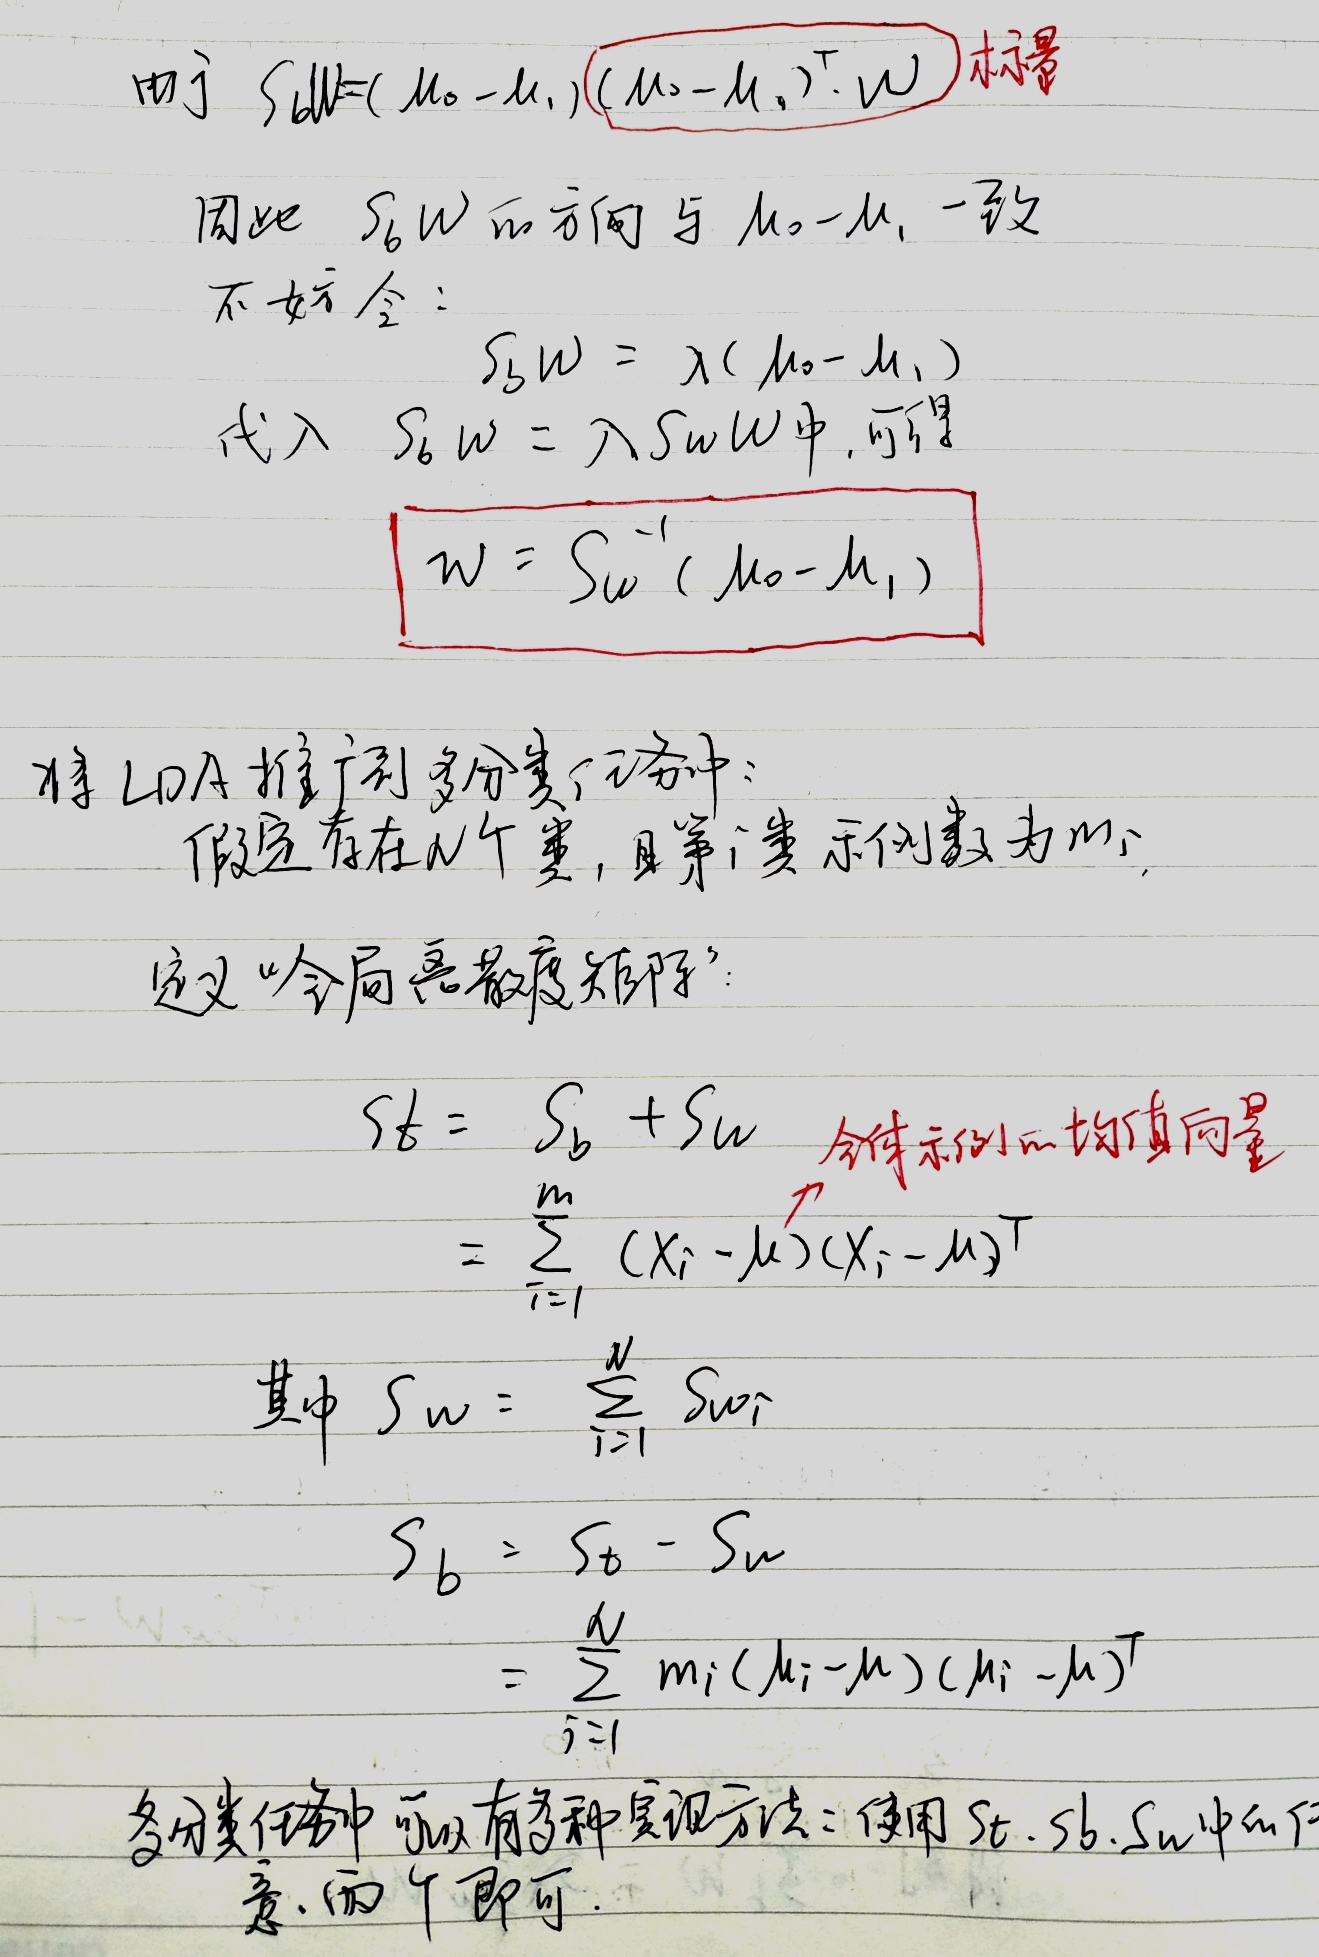 由于 S_bW=(μ₀-μ₁)(μ₀-μ₁)ᵀ·W 标量
因此 S_bW的方向与 μ₀-μ₁ 一致
不妨令:
S_bW = λ(μ₀-μ₁)
代入 S_bW = λS_wW中,可得
w = S_w⁻¹(μ₀-μ₁)
将LDA推广到多分类任务中:
假定存在N个类,且第i类示例数为mᵢ,
定义“全局散度矩阵”:
S_t = S_b + S_w
全体示例的均值向量
= ∑_{i=1}^{m} (Xᵢ-μ)(Xᵢ-μ)ᵀ
其中 S_w = ∑_{i=1}^{N} S_{wᵢ}
S_b = S_t - S_w
= ∑_{i=1}^{N} mᵢ(μᵢ-μ)(μᵢ-μ)ᵀ
多分类任务中可以有多种实现方法:使用S_t.S_b.S_w中的任
意.两个即可.